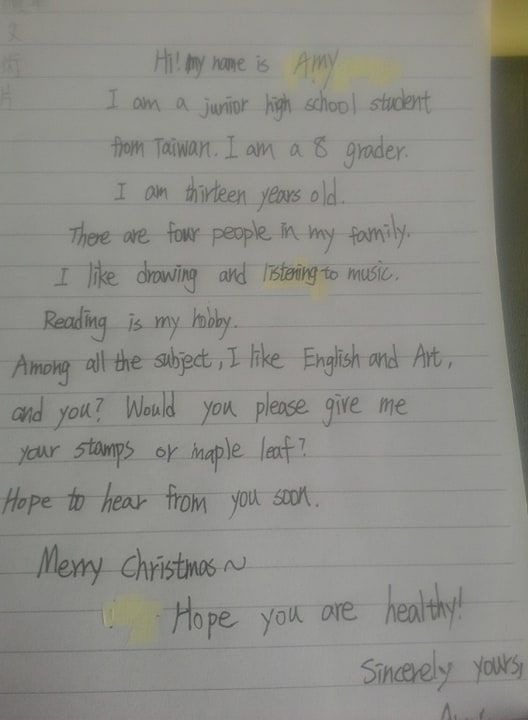 Hi! my name is Amy
I am a junior high school student
from Taiwan. I am a 8 grader.
I am thirteen years old.
There are four people in my family.
I like drawing and listening to music.
Reading is my hobby.
Among all the subject, I like English and Art,
and you? Would you please give me
your stamps or maple leaf?
Hope to hear from you soon.
Merry Christmas~
Hope you are healthy!
Sincerely yours,